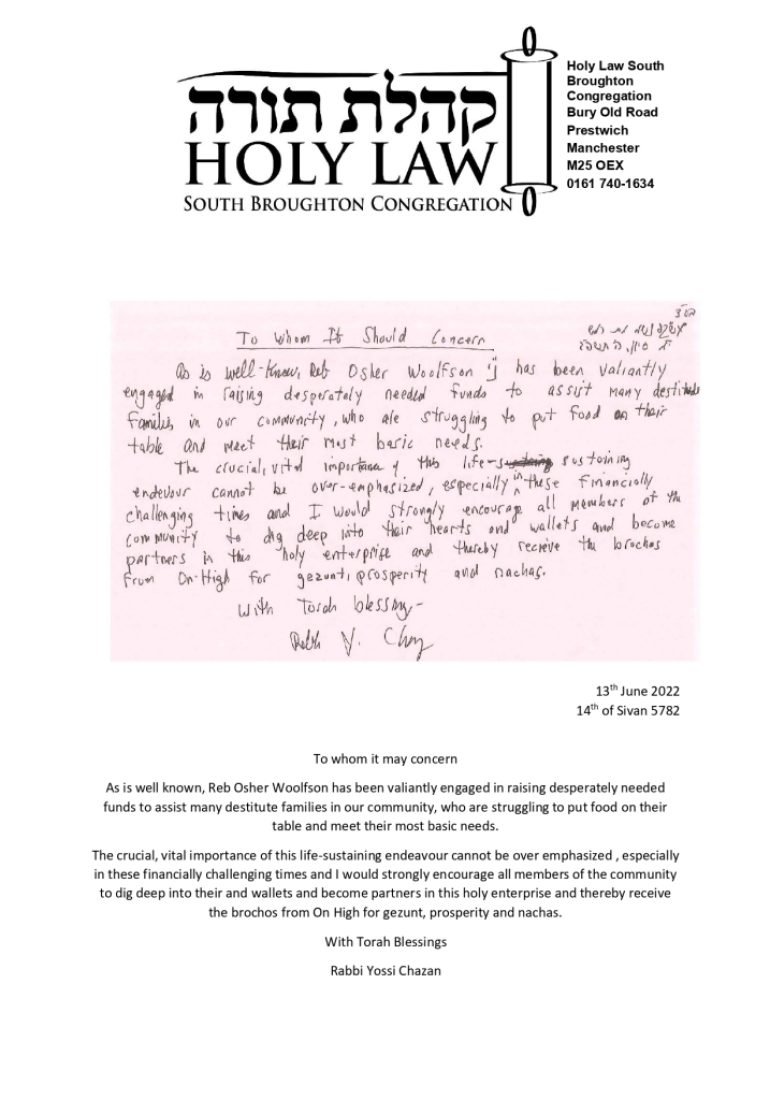 קהלת תורה
HOLY LAW
SOUTH BROUGHTON CONGREGATION
Holy Law South
Broughton
Congregation
Bury Old Road
Prestwich
Manchester
M25 OEX
0161 740-1634
To Whom It Should Concern
As is well-know, Reb Osher Woolfson has been valiantly
engaged in raising desperately needed funds to assist many destitute
families in our community, who are struggling to put food on their
table and meet their most basic needs.
The crucial, vital importance of this life-sustaining
endevour cannot be over-emphasized, especially in these financially
challenging times and I would strongly encourage all members of the
community to dig deep into their hearts and wallets and become
partners in this holy enterprise and thereby receive the brochos
from On-High for gezunt, prosperity and nachas.
With Torah blessing-
13th June 2022
14th of Sivan 5782
To whom it may concern
As is well known, Reb Osher Woolfson has been valiantly engaged in raising desperately needed
funds to assist many destitute families in our community, who are struggling to put food on their
table and meet their most basic needs.
The crucial, vital importance of this life-sustaining endeavour cannot be over emphasized , especially
in these financially challenging times and I would strongly encourage all members of the community
to dig deep into their and wallets and become partners in this holy enterprise and thereby receive
the brochos from On High for gezunt, prosperity and nachas.
With Torah Blessings
Rabbi Yossi Chazan